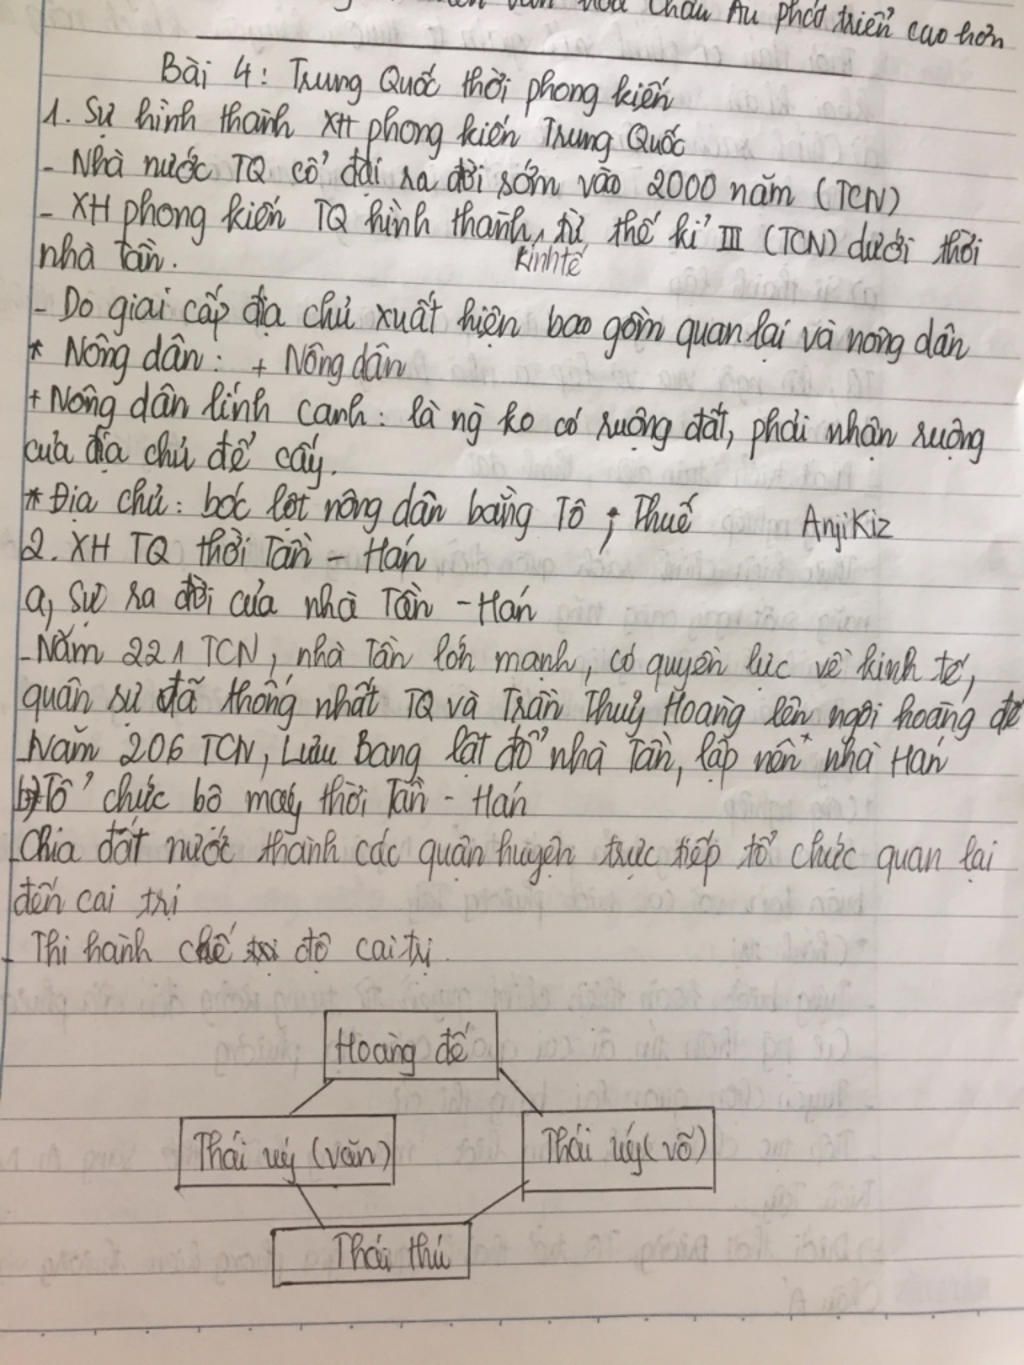 Châu Âu phát triển cao hơn
Bài 4: Trung Quốc thời phong kiến
1. Sự hình thành XH phong kiến Trung Quốc
- Nhà nước TQ cổ đại ra đời sớm vào 2000 năm (TCN)
- XH phong kiến TQ hình thành từ thế kỉ III (TCN) dưới thời
kinh tế
nhà Tần.
- Do giai cấp địa chủ xuất hiện bao gồm quan lại và nông dân
* Nông dân: + Nông dân
+ Nông dân lính canh: là ng ko có ruộng đất, phải nhận ruộng
của địa chủ để cấy.
* Địa chủ: bóc lột nông dân bằng Tô; Thuế AnjiKiz
2. XH TQ thời Tần - Hán
a, Sự ra đời của nhà Tần - Hán
- Năm 221 TCN, nhà Tần lớn mạnh, có quyền lực về kinh tế,
quân sự đã thống nhất TQ và Trần Thuỷ Hoàng lên ngôi hoàng đế
- Năm 206 TCN, Lưu Bang lật đổ nhà Tần, lập nên nhà Hán
b, Tổ chức bộ máy thời Tần - Hán
- Chia đất nước thành các quận huyện trực tiếp tổ chức quan lại
đến cai trị
- Thi hành chế độ cai trị.
Hoàng đế
Thái uý (văn) Thái uý (võ)
Thái thú